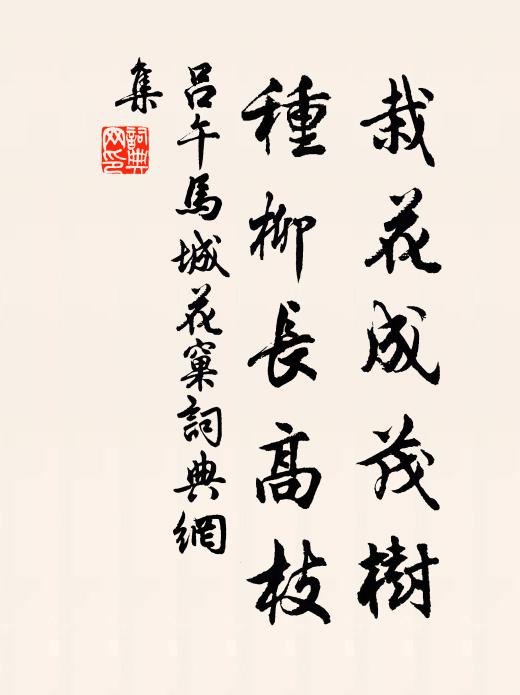 栽花成茂樹
種柳長高枝
呂午馬城花窠詞典網
集
詞典網印